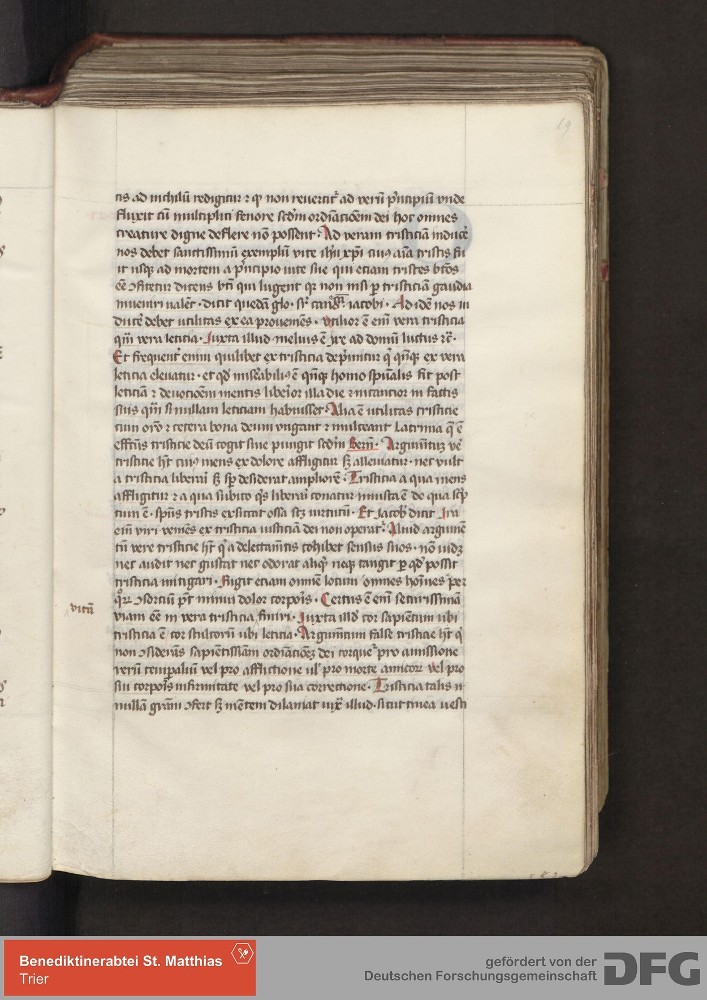 69
tis ad nichilū redigitur ⁊ ꝙ non reuertit᷑ ad verū p̄ncipiū vnde
fluxit cū multiplici fenore scd̄m ordīacōem dei hoc omnes
creature digne deflere nō possent Ad veram tristiciā inducē
nos debet sanctissimū exemplū vite xp̄i cuiꝯ aīa tristis fu
it usqꝫ ad mortem a p̄ncipio uite sue qui etiam tristes bt̄os
eē ꝯfitetur dicens bt̄i qui lugent qꝛ non nisi ꝑ tristiciā gaudia
inueniri valēt · dicit quedā glo · sr̄ iacobi · Ad idē nos in
ducē debet utilitas ex ea proueniēs · vtilior ē em̄ vera tristicia
qm̄ vera leticia · Iuxta illud · melius ē ire ad domū luctus ⁊c̄ ·
Et frequent᷑ enim quilibet ex tristicia dep̄mitur qͥ qn̄qꝫ ex vera
leticia eleuatur · et qd̓ mirabilius ē qn̄qꝫ homo spūalis fit post
leticiā ⁊ deuocōem mentis liberior illa die ⁊ incautior in factis
suis qm̄ si nullam leticiam habuisset · Alia ē utilitas tristicie
cum oro ⁊ cetera bona deum vngant ⁊ mulceant Lacrima qͥ ē
effctūs tristicie deū cogit siue pungit scd̄m Bern̄ · Argumētū vē
tristicie hȝ cuiꝯ mens ex dolore affligitur sȝ alleuiatur · nec vult
a tristicia liberari sȝ sꝑ desiderat ampliorē · Tristicia a qua mens
affligitur ⁊ a qua subito qͥs liberari conatur iniusta ē de qua scͥp
tum ē · spūs tristis exsiccat ossa scȝ virtutū · Et Jacob̄ dicit Ira
em̄ viri veniēs ex tristicia iusticiā dei non operat᷑ · Aliud argumē
tū vere tristicie hȝ qͥ a delectamētis cohibet sensus suos · nō uidȝ
nec audit nec gustat nec odorat aliqͥ neqꝫ tangit ꝑ qd̓ possit
tristicia mitigari · Fugit etiam omnē locum omnes hoīnes ꝑer
qͦꝝ ꝯsorciū pt̄ minui dolor corporis · Certus ē em̄ securissimā
viam eē in vera tristicia finiri · Iuxta illd̓ cor sapiētum ubi
tristicia ē cor stultorū ubi leticia · Argumētum false tristicie hȝ qͥ
non ꝯsiderās sapientissīam ordīacōeȝ dei torquet᷑ pro amissione
rerū temꝑaliū vel pro afflictione ul̓ pro morte amicoꝝ vel pro
sui corporis infirmitate vel pro sua correctione · Tristicia talis n
nullā grām ꝯfert sȝ mētem dilaniat iuxͣ illud · sicut tinea vesti
vitū
Benediktinerabtei St. Matthias
Trier
gefördert von der
Deutschen Forschungsgemeinschaft
DFG